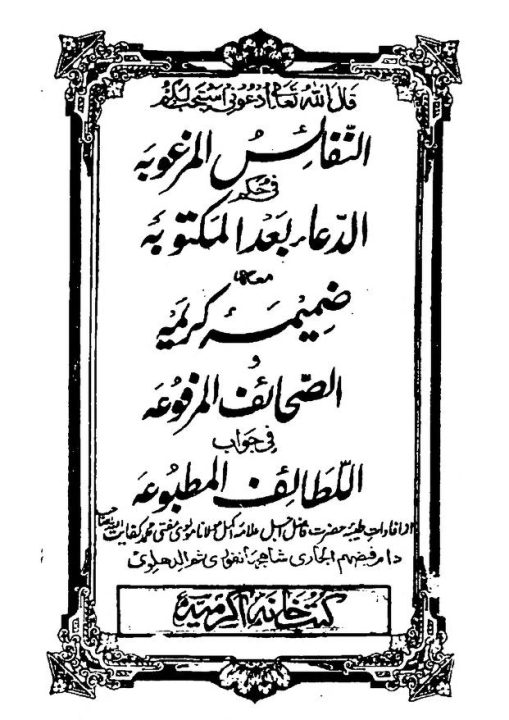 قال الله تعالى ادعونی استجب لکم
النّفائسُ المرغوبه
فی حُکم
الدّعاء بَعدَ المکتوبه
معها
ضمیمۂ کریمیه
و
الصّحائف المرفوعه
فی جواب
اللّطائف المطبوعه
از افاداتِ طیبه حضرت فاضل اجل علامه اکمل مولانا مولوی مفتی محمد کفایت الله صاحب
دام فیضهم الجاری شاهجهانفوری ثم الدهلوی
کتب خانه اکرمیه